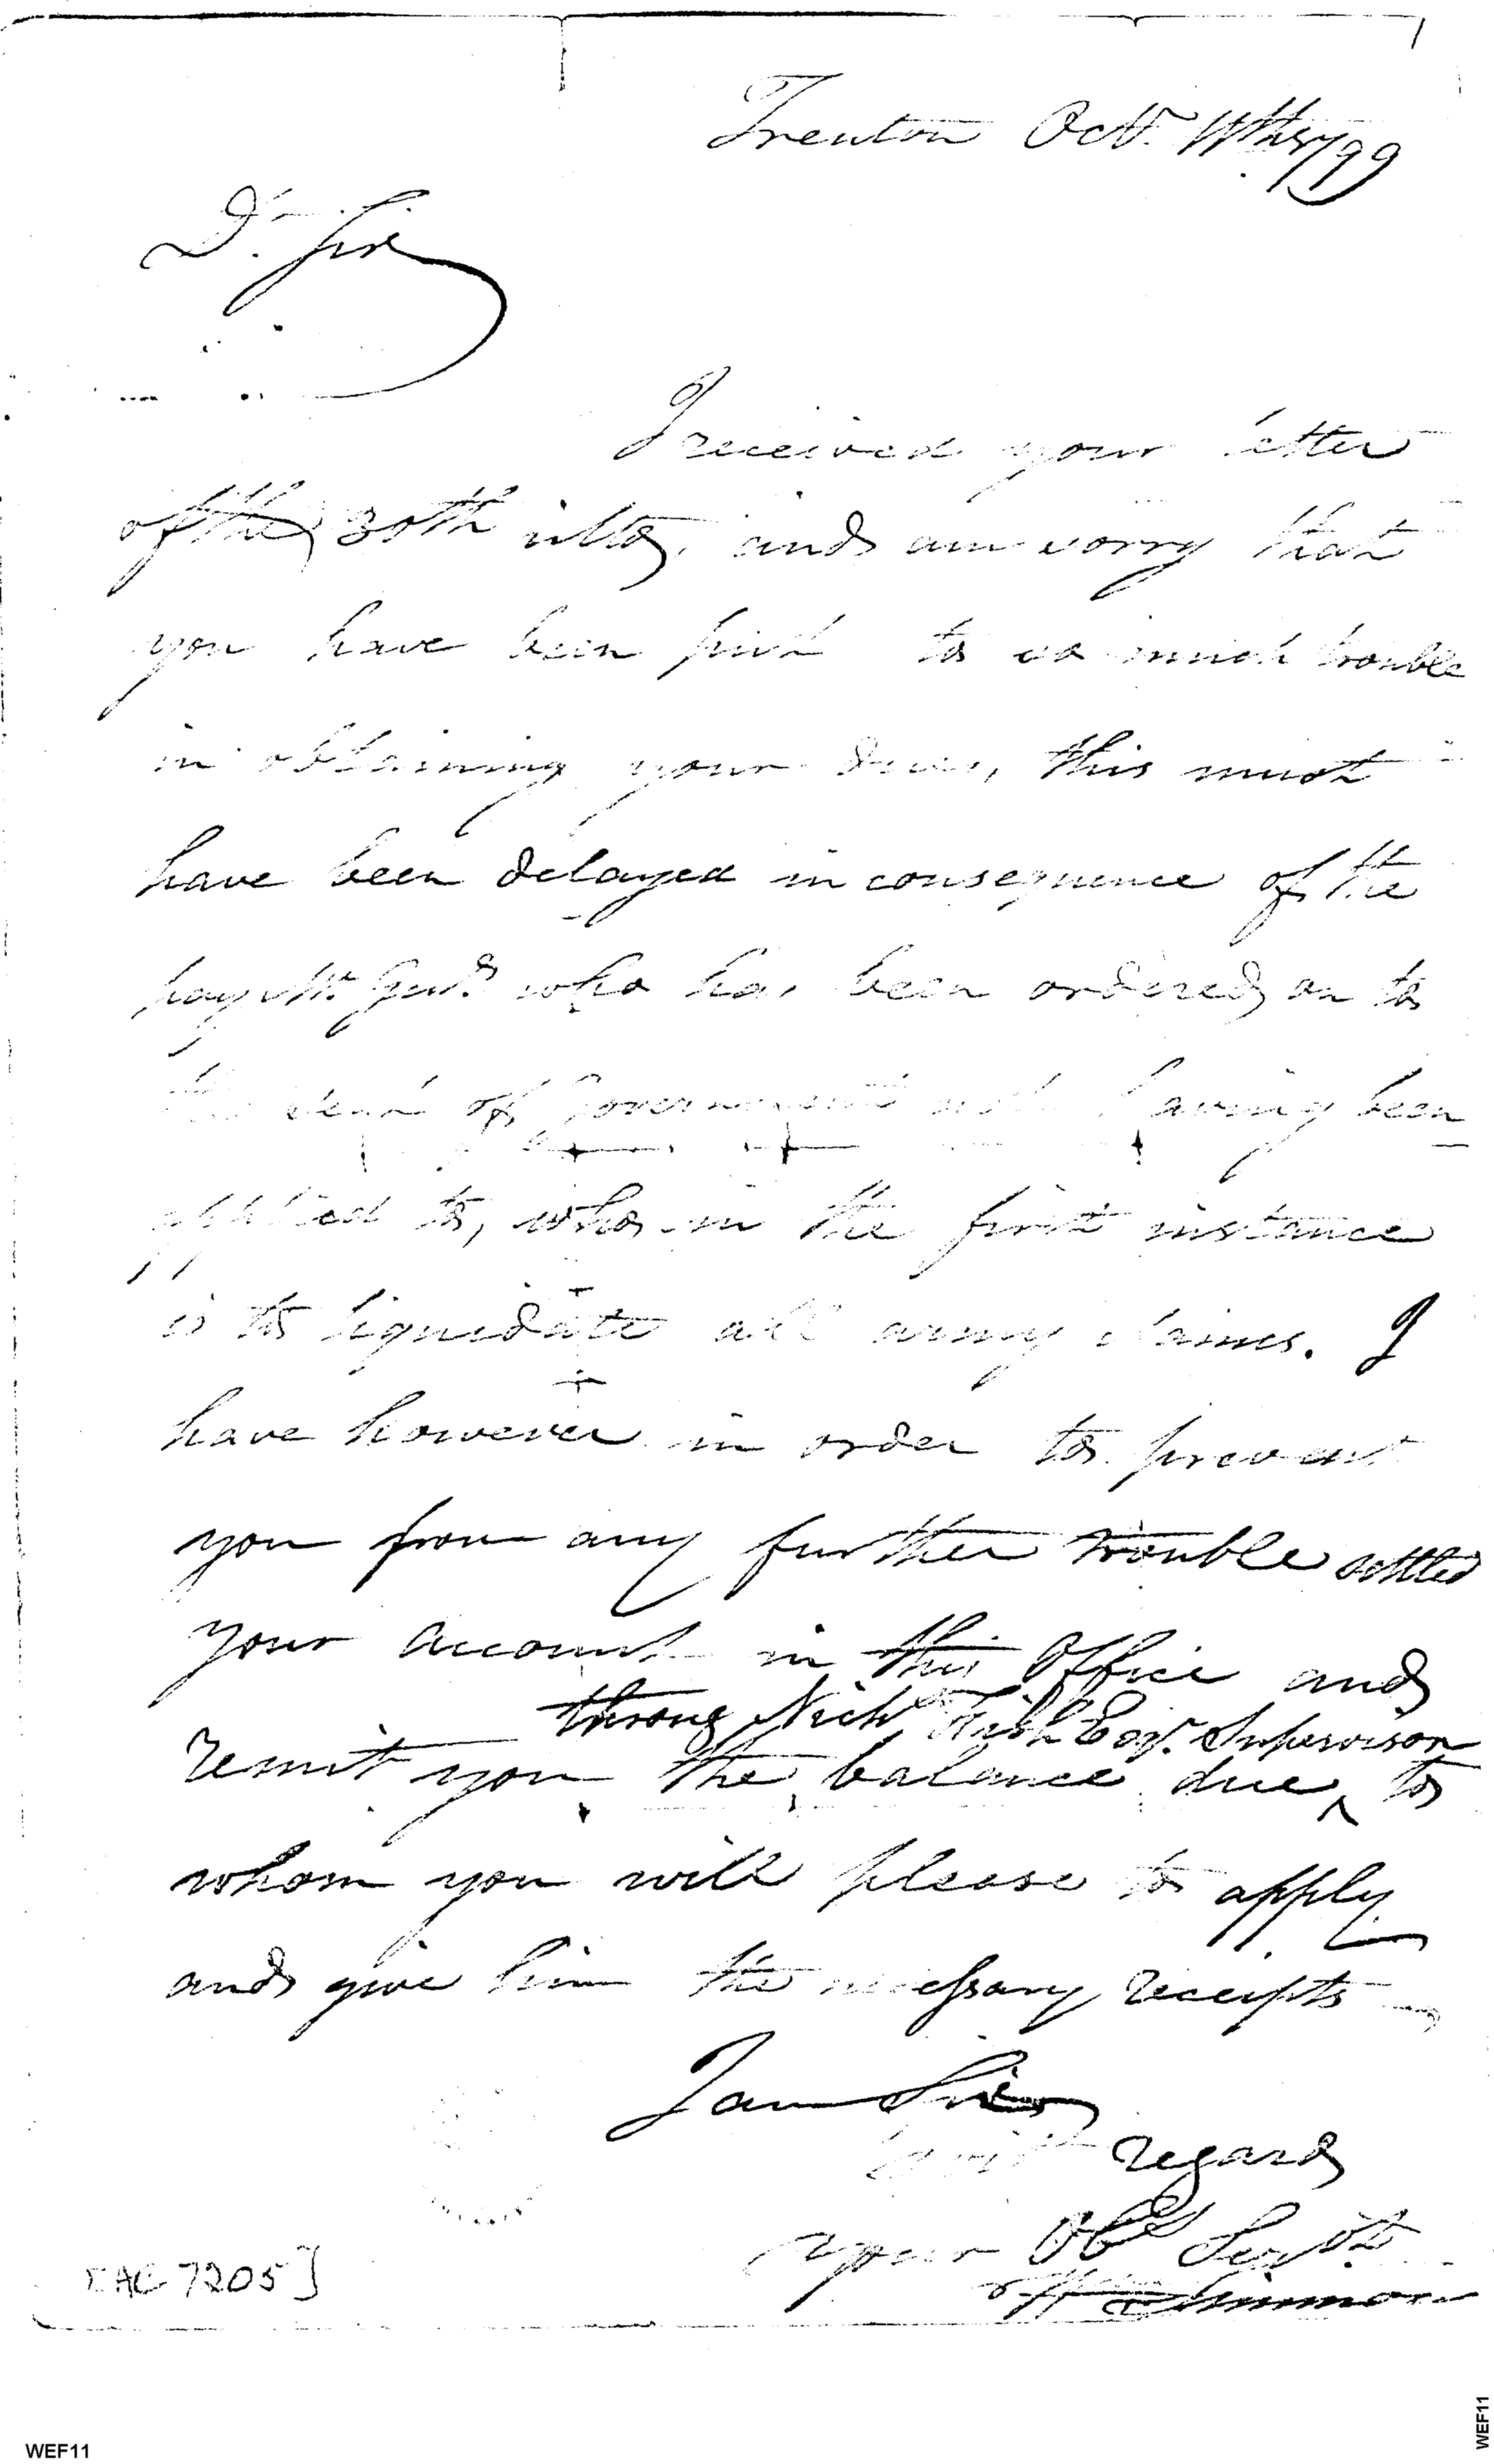 Trenton Octr. 11th 1799
Dr. Sir
I received your letter
of the 30th ulto, and am sorry that
you have been put to so much trouble
in obtaining your dues, this must
have been delayed in consequence of the
pay Mr. Genl. who has been ordered on to
the seat of government not having been
applied to, who in the first instance
is to liquidate all army claims. I
have however in order to prevent
you from any further trouble settled
your account in this Office and
throug Nichs Fish Esqr. Supervisor
remit you the balance due ^ to
whom you will please to apply
and give him the necessary receipts
I am Sir
with regard
your Obd. Servt.
Wm Simmons
[AC 7205]
WEF11
WEF11